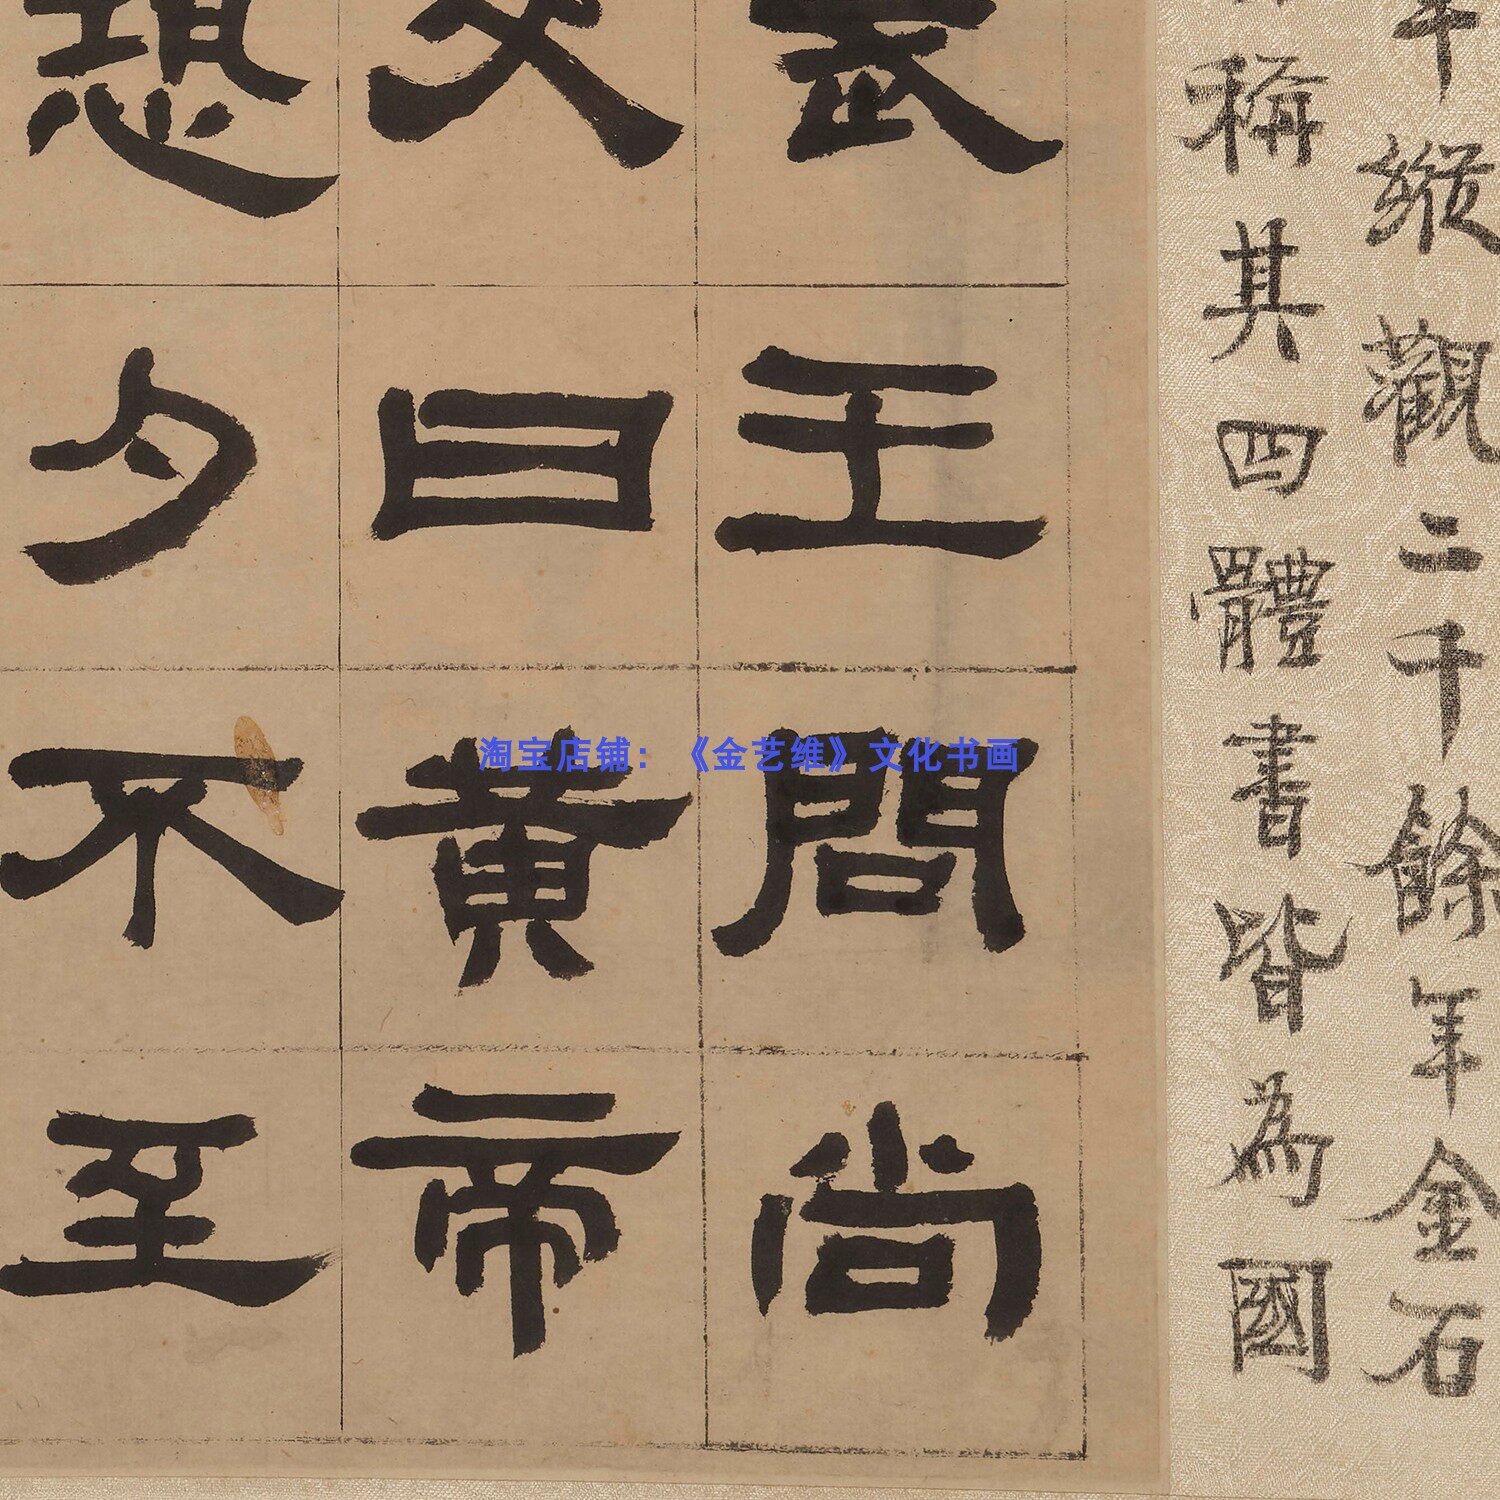 縱觀二千餘年金石
稱其四體書皆為國
武王問尚
父曰黃帝
恐夕不至
淘宝店铺：《金艺维》文化书画